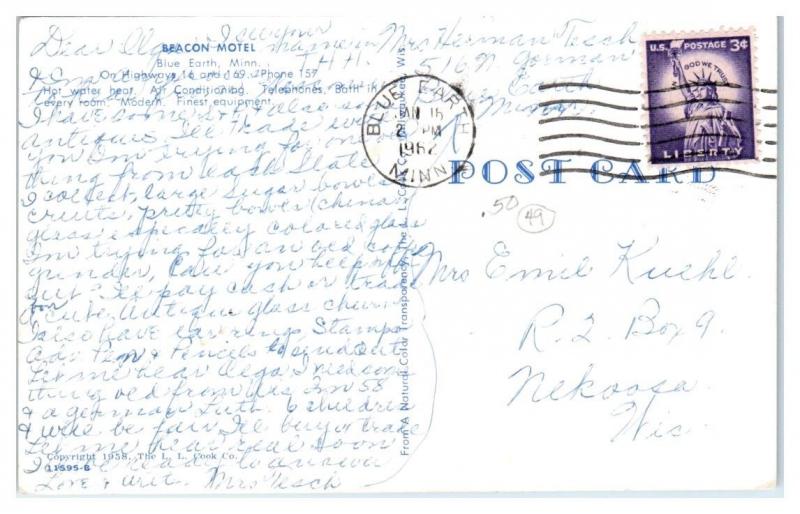 BEACON MOTEL
Blue Earth, Minn.
On Highways 16 and 169. Phone 157
Hot water heat. Air Conditioning. Telephones. Bath in
every room. Modern. Finest equipment.
Dear Olga, I saw your
name in
T.H.H.
Mrs Herman Tesch
516 N Gorman
Blue Earth
Minn
I have
antiques I'll trade
you I'm trying for
thing from each State
I collect, large sugar bowls
cruits, pretty bowls (china or
glass especially colored glass
I'm trying for an old coffee
grinder, Can you help me
out I'll pay cash or trade
for
a cute Antique glass churn
I also have earrings, Stamps
Adv. Pens & Pencils to send out
Let me hear Olga I need some
thing old from Wis I'm 58
& a german Luth. 6 children
I will be fair I'll buy or trade
Let me hear real soon
I'll be ready to answer
Love & write Mrs Tesch
Copyright 1958, The L. L. Cook Co.
11595-B
From A Natural Color Transparency, The L. L. Cook Co., Milwaukee, Wis.
BLUE EARTH
JAN 16
PM
1962
MINN
U.S. POSTAGE 3¢
IN GOD WE TRUST
LIBERTY
POST CARD
.50
49
Mrs Emil Kuehl
R. 2 Box 9.
Nekoosa
Wis.